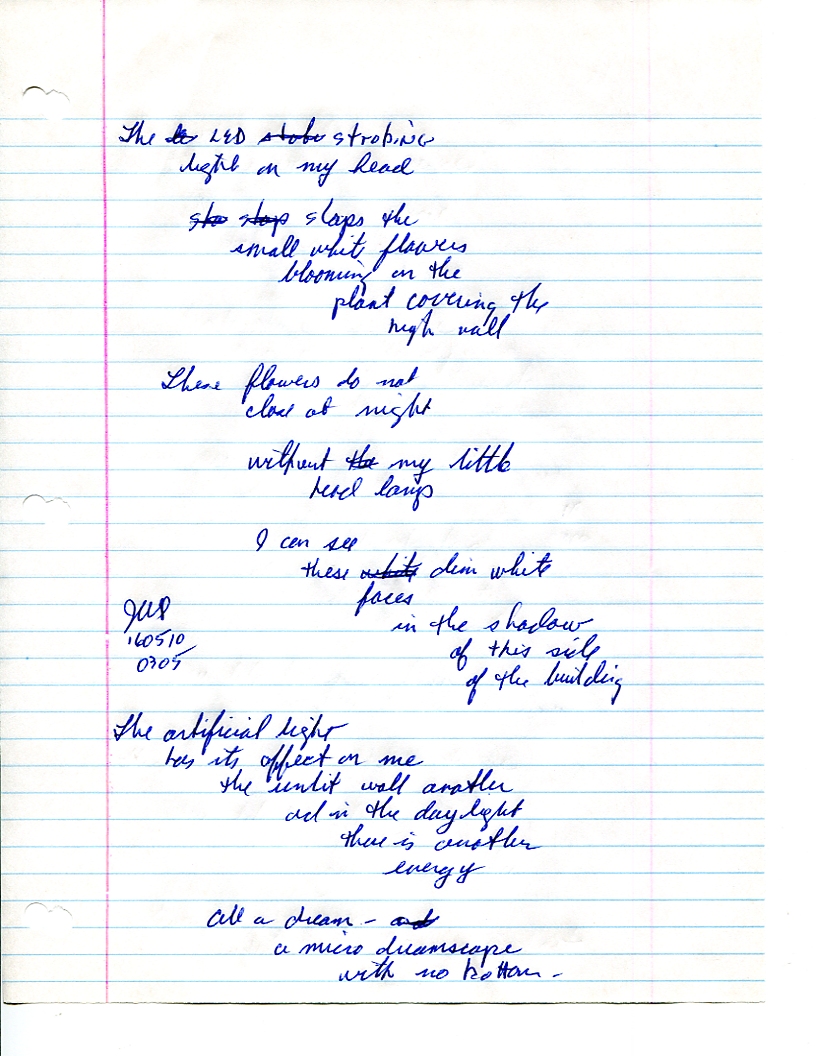 The LED strobe STROBING
light on my head
slaps the
small white flowers
blooming on the
plant covering the
high wall
These flowers do not
close at night
without the my little
head lamp
I can see
these white dim white
faces
in the shadow
of this side
of the building
160510
0305
The artificial light
has its effect on me
the unlit wall another
and in the daylight
there is another
energy
All a dream - and
a micro dreamscape
with no bottom -